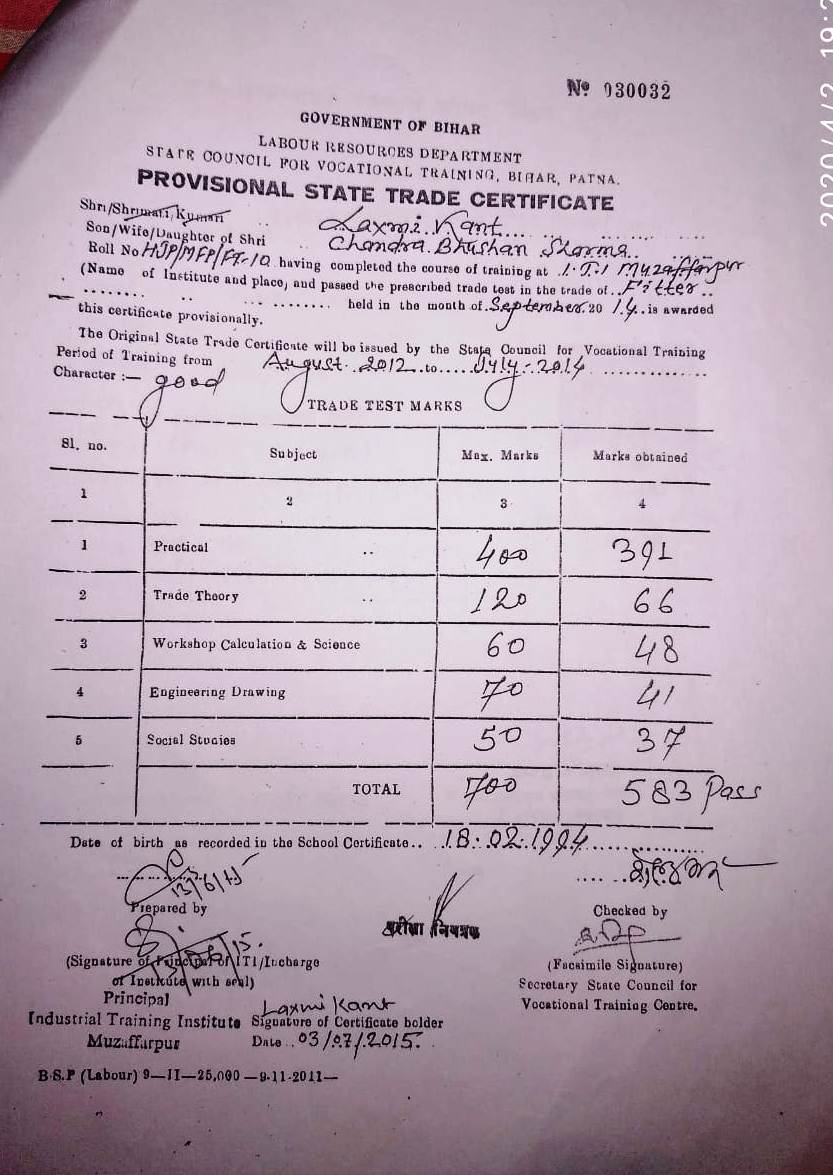 2020/4/2 19:2
Nº 030032
GOVERNMENT OF BIHAR
LABOUR RESOURCES DEPARTMENT
STATE COUNCIL FOR VOCATIONAL TRAINING, BIHAR, PATNA.
PROVISIONAL STATE TRADE CERTIFICATE
Shri/Shrimati/Kumari Laxmi Kant
Son/Wife/Daughter of Shri Chandra Bhushan Sharma
Roll No HJP/MFP/FT-10 having completed the course of training at I.T.I Muzaffarpur
(Name of Institute and place, and passed the prescribed trade test in the trade of Fitter
held in the month of September 2014 is awarded
this certificate provisionally.
The Original State Trade Certificate will be issued by the State Council for Vocational Training
Period of Training from August 2012 to July-2014
Character :— good
TRADE TEST MARKS
Sl. no. Subject Max. Marks Marks obtained
1 2 3 4
1 Practical .. 400 391
2 Trade Theory .. 120 66
3 Workshop Calculation & Science 60 48
4 Engineering Drawing 70 41
5 Social Studies 50 37
TOTAL 700 583 Pass
Date of birth as recorded in the School Certificate.. 18.02.1994
Prepared by Checked by
परीक्षा नियंत्रक
(Signature of Principal of ITI/Incharge (Facsimile Signature)
of Institute with seal) Secretary State Council for
Principal Laxmi Kant Vocational Training Centre.
Industrial Training Institute Signature of Certificate holder
Muzaffarpur Date .. 03/07/2015.
B.S.P (Labour) 9—II—25,000 —9-11-2011—